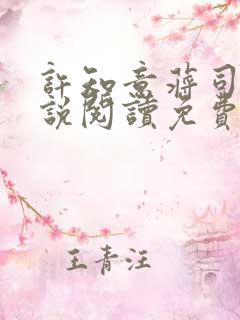 許知意蔣司
說閱讀免費
王青汪